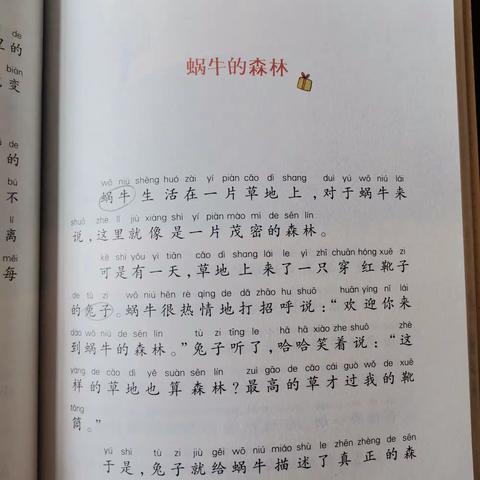 de
里的
biàn
变
de
的
bù
不
lí
离
měi
每
蜗牛的森林
wō niú shēng huó zài yí piàn cǎo dì shang duì yú wō niú lái
蜗牛生活在一片草地上，对于蜗牛来
shuō zhè lǐ jiù xiàng shì yí piàn mào mì de sēn lín
说，这里就像是一片茂密的森林。
kě shì yǒu yì tiān cǎo dì shang lái le yì zhī chuān hóng xuē zi
可是有一天，草地上来了一只穿红靴子
de tù zi wō niú hěn rè qíng de dǎ zhāo hu shuō huān yíng nǐ lái
的兔子。蜗牛很热情地打招呼说：“欢迎你来
dào wō niú de sēn lín tù zi tīng le hā hā xiào zhe shuō zhè
到蜗牛的森林。”兔子听了，哈哈笑着说：“这
yàng de cǎo dì yě suàn sēn lín zuì gāo de cǎo cái guò wǒ de xuē
样的草地也算森林？最高的草才过我的靴
tǒng
筒。”
yú shì tù zi jiù gěi wō niú miáo shù le zhēn zhèng de sēn
于是，兔子就给蜗牛描述了真正的森